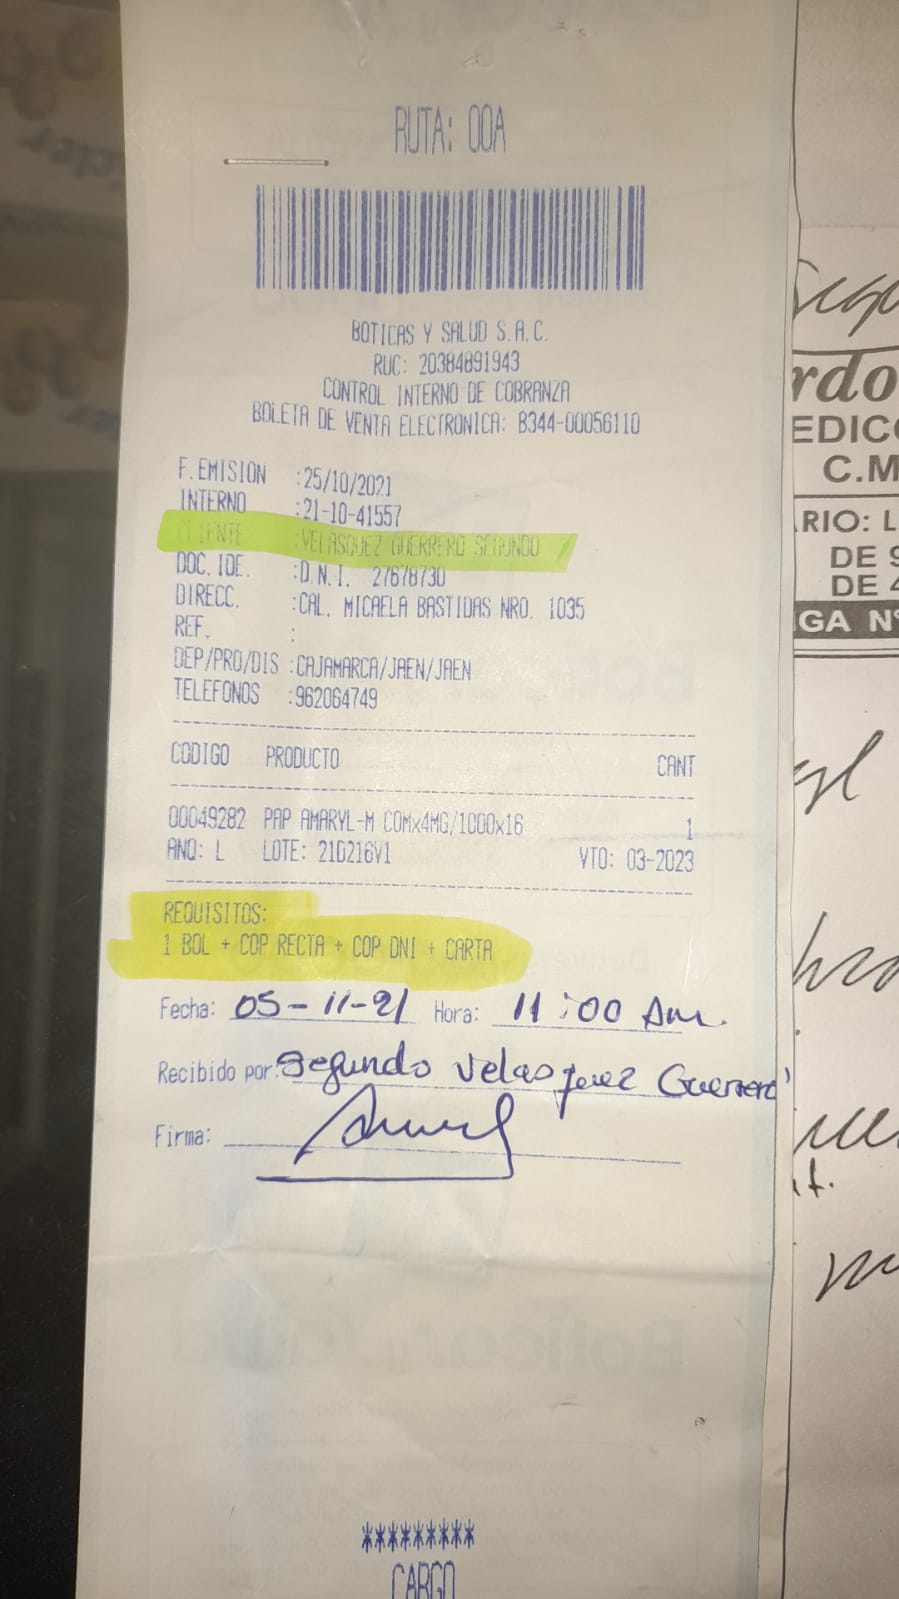 RUTA: 00A
BOTICAS Y SALUD S.A.C.
RUC: 20384891943
CONTROL INTERNO DE COBRANZA
BOLETA DE VENTA ELECTRONICA: B344-00056110
F.EMISION :25/10/2021
INTERNO :21-10-41557
CLIENTE :VELASQUEZ GUERRERO SEGUNDO
DOC.IDE. :D.N.I. 27678730
DIRECC. :CAL. MICAELA BASTIDAS NRO. 1035
REF. :
DEP/PRO/DIS :CAJAMARCA/JAEN/JAEN
TELEFONOS :962064749
CODIGO PRODUCTO CANT
00049282 PAP AMARYL-M COMx4MG/1000x16 1
ANQ: L LOTE: 21D216V1 VTO: 03-2023
REQUISITOS:
1 BOL + COP RECTA + COP DNI + CARTA
Fecha: 05-11-21 Hora: 11:00 Am.
Recibido por: Segundo Velasquez Guerrero
Firma:
*********
CARGO
rdo
EDICO
C.M
RIO: L
DE 9
DE 4
GA Nº